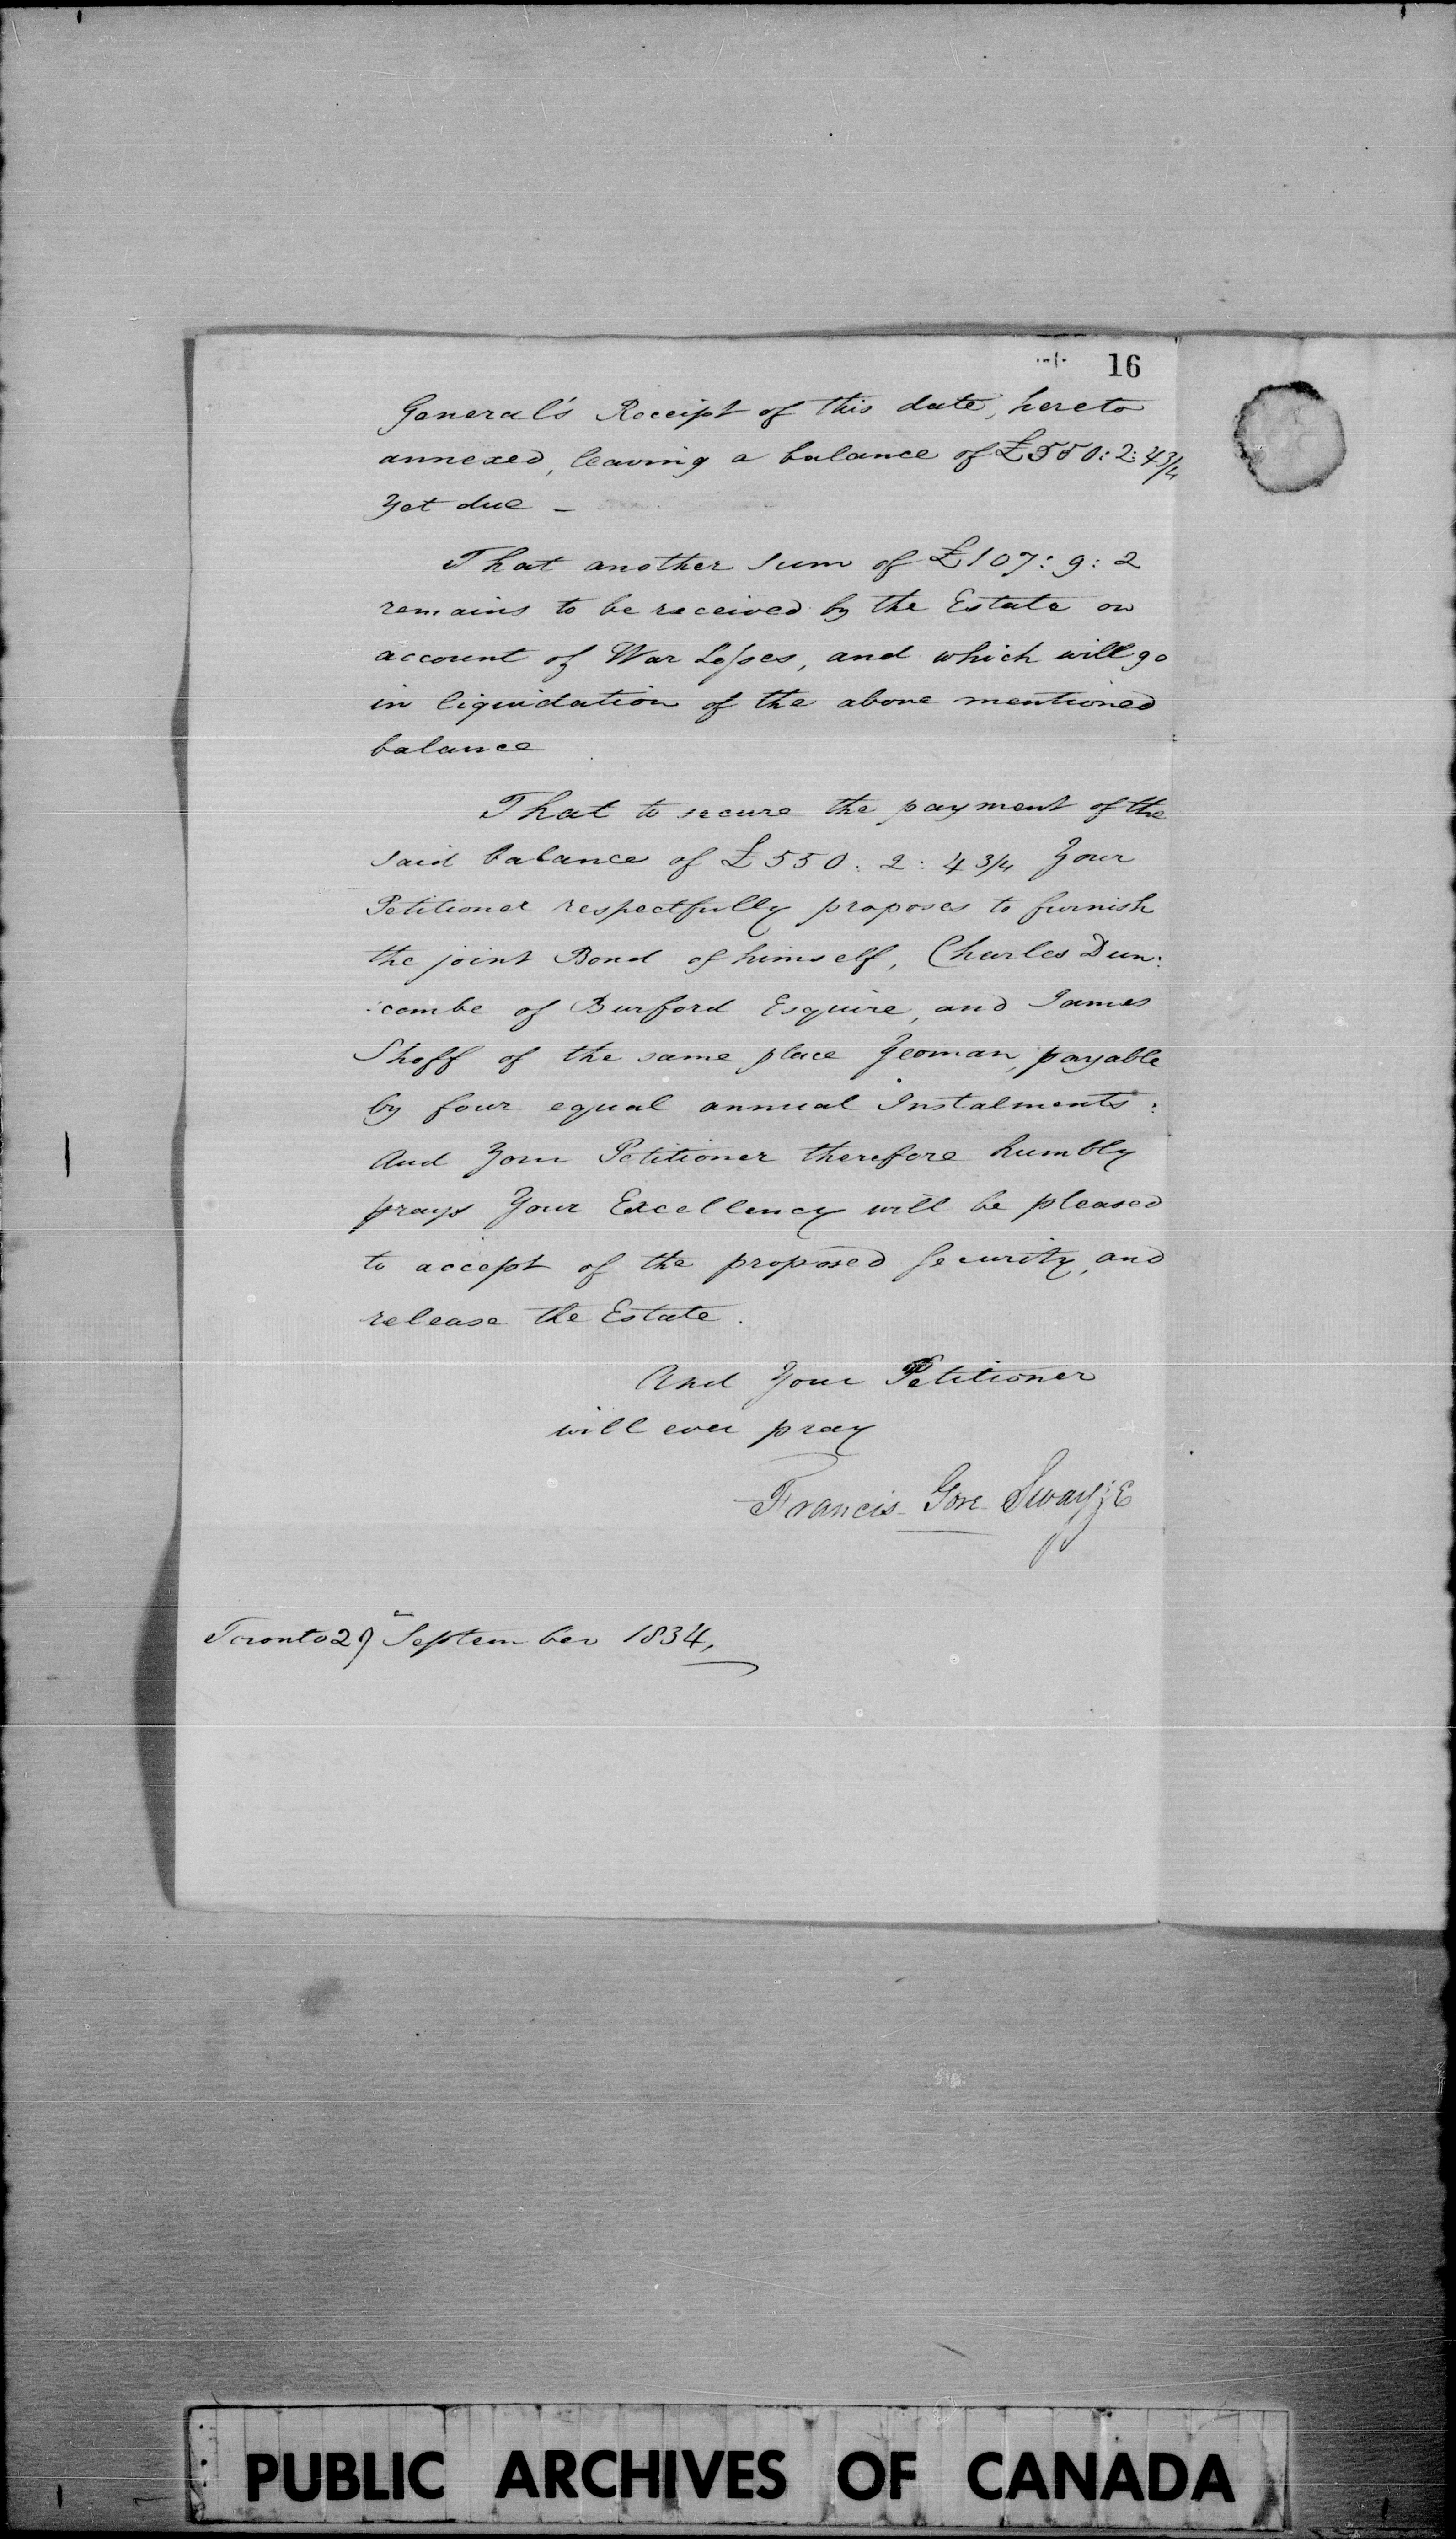 16
General's Receipt of this date, hereto
annexed, leaving a balance of £550: 2: 4 3/4
Yet due _
That another Sum of £107: 9: 2
remains to be received by the Estate on
account of War Losses, and which will go
in liquidation of the above mentioned
balance
That to secure the payment of the
said balance of £550: 2: 4 3/4 Your
Petitioner respectfully proposes to furnish
the joint Bond of himself, Charles Dun:
:combe of Burford Esquire, and James
Shoff of the same place Yeoman, payable
by four equal annual Instalments:
And Your Petitioner therefore humbly
prays Your Excellency will be pleased
to accept of the proposed Security, and
release the Estate.
And Your Petitioner
will ever pray
Francis Gore SwayzE
Toronto 29 September 1834,
PUBLIC ARCHIVES OF CANADA